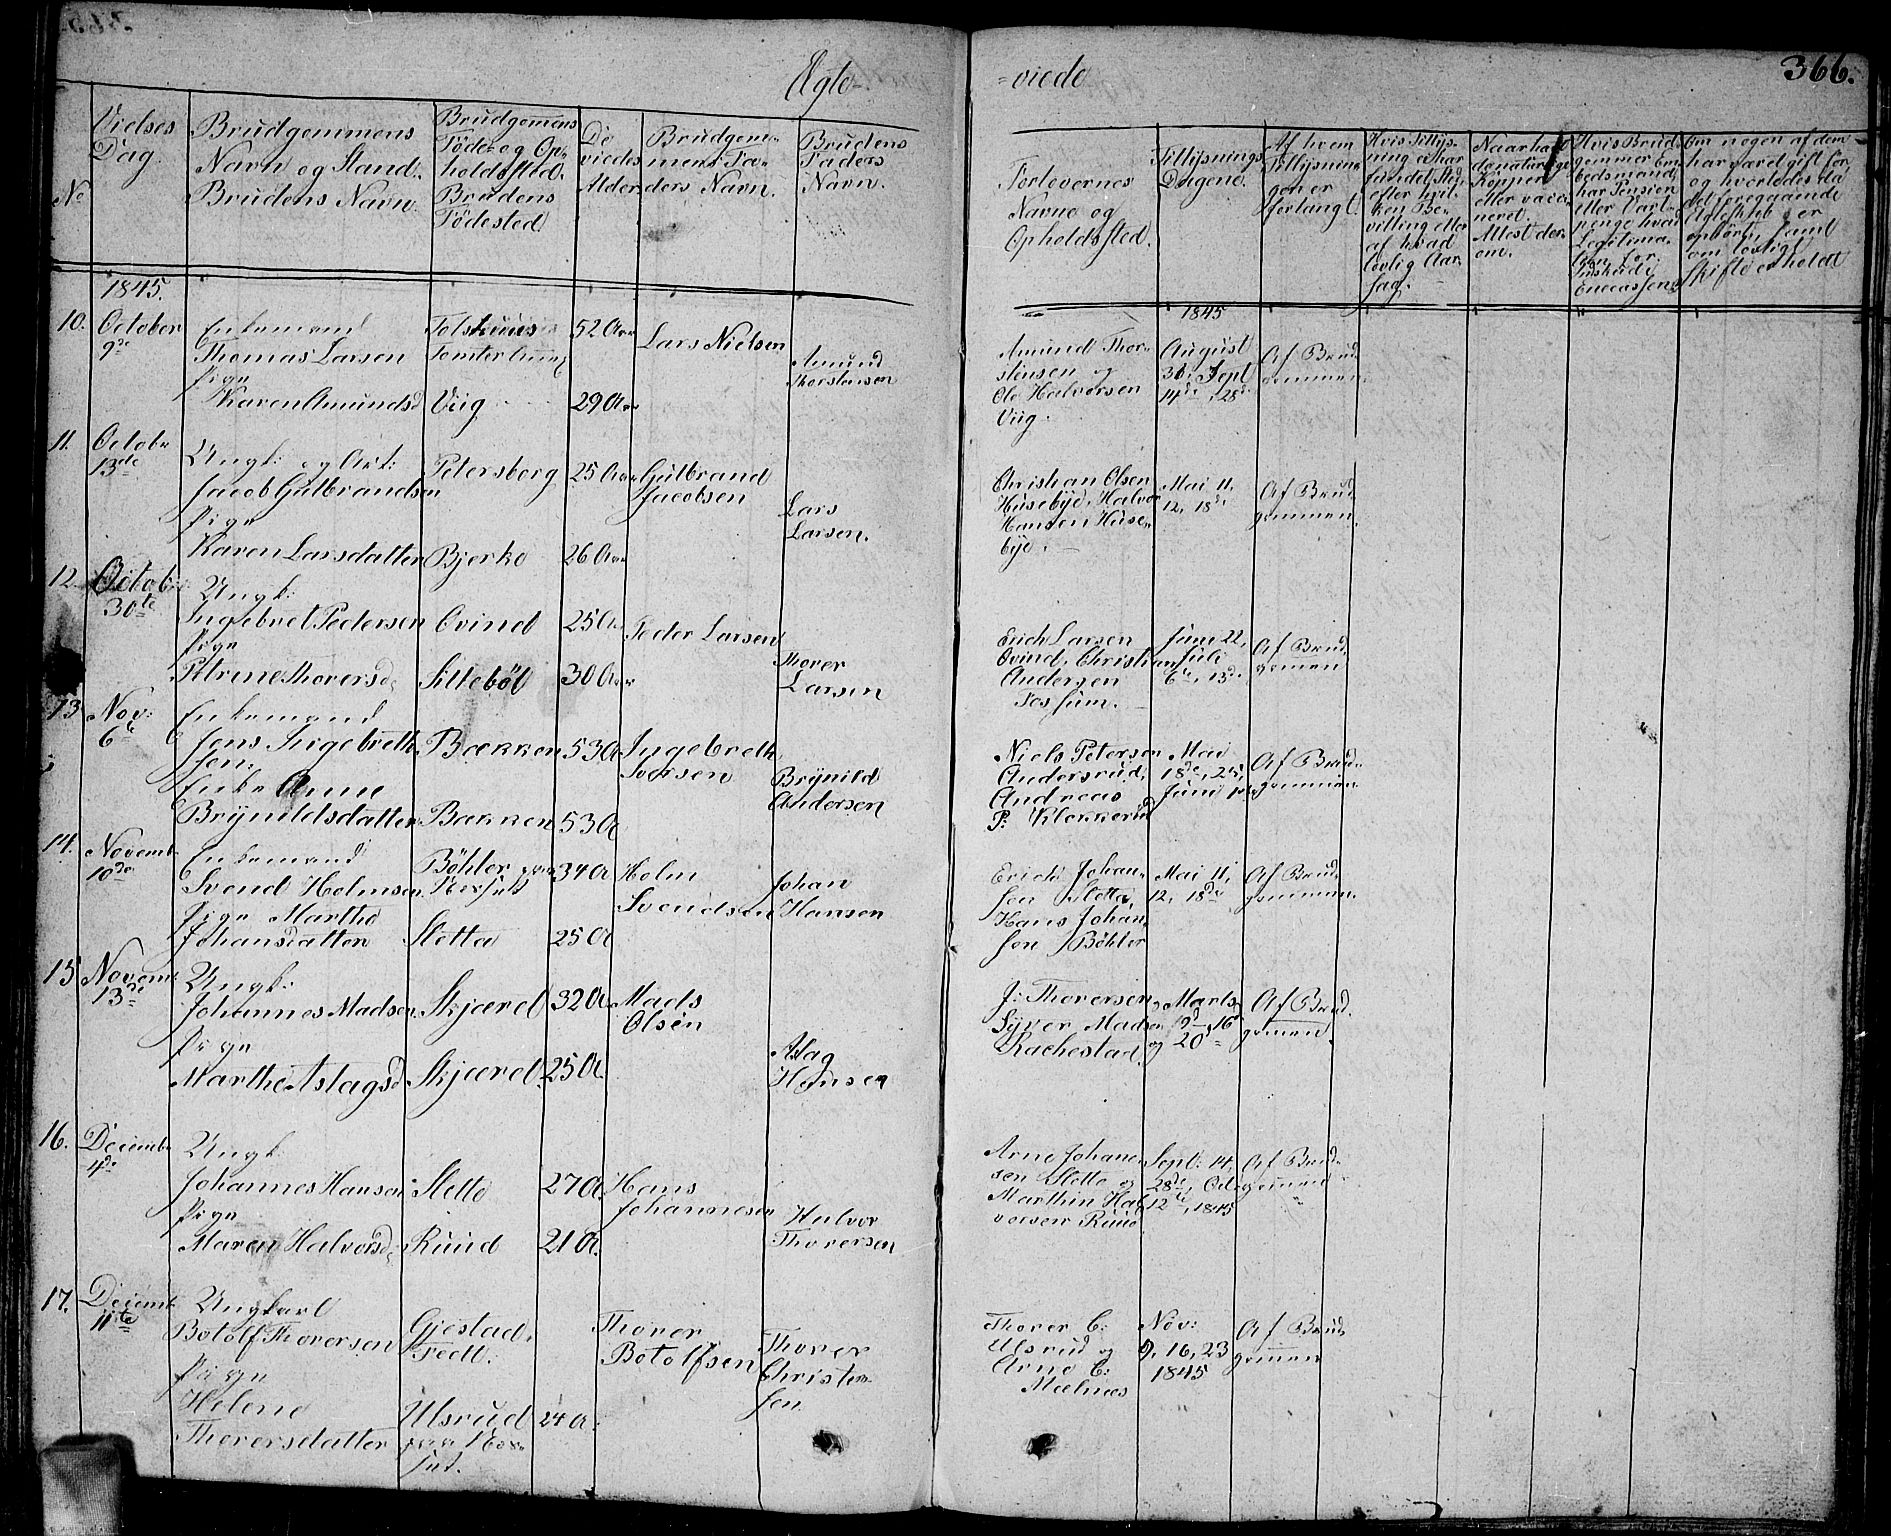 366.
Ægte-
-viede
No
Vielses
Dag.
Brudgommens
Navn og Stand.
Brudens Navn.
Brudgomens
Føde- og Op-
holdssted.
Brudens
Fødested
De
viedes
Alder
Brudgom-
mens Fa-
ders Navn.
Brudens
Faders
Navn.
Forlovernes
Navne og
Opholdssted.
Tillysnings
Dagene.
Af hvem
Tillysnin-
gen er
forlangt.
Hvis Tillys-
ning ei har
fundet Sted,
efter hvil-
ken Be-
villing eller
af hvad
lovlig Aar-
sag.
Naar hav
de naturlige
Kopper
eller vacci-
neret.
Attest der-
om.
Hvis Brud-
gommer Em-
bedsmand,
har Pension
eller Vart-
penge hvad
Legitima-
tion for
Indskud i
Enkecassen
Om nogen af dem
har været gift før
og hvorledes da
det foregaaende
Ægteskab er
ophørt, samt
om lovligt
Skifte er holdt
1845.
1845
10.
October
9de
Enkemand
Thomas Larsen
Pige
Karen Amundsd
Viig
52 Aar
29 Aar
Lars Nielsen
Amund
Thorstensen
Amund Thor-
stensen og
Ole Halvorsen
Viig.
August
31, Sept
14de, 28de
Af Brud-
gommen
11.
Octobr
13de
Ungk: og Art:
Jacob Gulbrandsen
Pige
Karen Larsdatter
Petersborg
Bjerke
25 Aar
26 Aar
Gulbrand
Jacobsen
Lars
Larsen.
Christian Olsen
Husebye, Halvor
Hansen Huse-
bye.
Mai 11,
12, 18de
Af Brud-
gommen.
12.
Octob
30te
Ungk:
Ingebret Pedersen
Pige
Petrine Thorersd
Ovind
Sillebøl
25 A
30 Aar
Peder Larsen
Thorer
Larsen
Erich Larsen
Ovind, Christian
Andersen
Fossum.
Juni 22,
Juli
6te, 13de
Af Brud-
gomen
13
Nov:
6te
Enkemand
Jens Ingebreth-
sen.
Enke Anne
Brynildsdatter
Bækken
Bækken
53 A
53 A
Ingebreth
Iversen
Brynild
Andersen
Niels Petersen
Andersrud,
Andreas
P: Klokkerud
Mai
18de, 25,
Juni 1
Af Brud-
gommen
14.
Novemb
10de
Enkemand
Svend Holmsen
Pige Marthe
Johansdatter
Bøhler paa
Sletta
34 A
25 A
Holm
Svendsen
Johan
Hansen
Erich Johan-
sen Sletta,
Hans Johan-
sen Bøhler
Mai 11,
12, 18de
Af Brud-
gommen.
15
Novemb
13de
Ungk:
Johannes Madsen
Pige
Marthe Aslagsd
Skjæred
Skjæred
32 A
25 A
Mads
Olsen
Aslag
Hansen
J: Thorersen
Syver Madsen
Rachestad
Marts
9d, 16d
og 20d
Af Brud-
gomen.
16.
Decemb
4de
Ungk
Johannes Hansen
Pige
Maren Halvorsd
Slette
Ruud
27 A
21 A.
Hans
Johannesen
Halvor
Thorersen
Arne Johane-
sen Slette og
Marthin Hal-
vorsen Ruud
Sept: 14,
28de, Oct
12te, 1845
Af Brud-
gomen
17.
Decemb
11te
Ungkarl
Botolf Thorersen
Pige
Helene
Thorersdatter
Gjestad.
Ulsrud
24 A.
Thorer
Botolfsen
Thorer
Christen-
sen.
Thorer C:
Ulsrud og
Arne C:
Mælnæs
Nov:
9, 16, 23
1845
Af Brud-
gomen